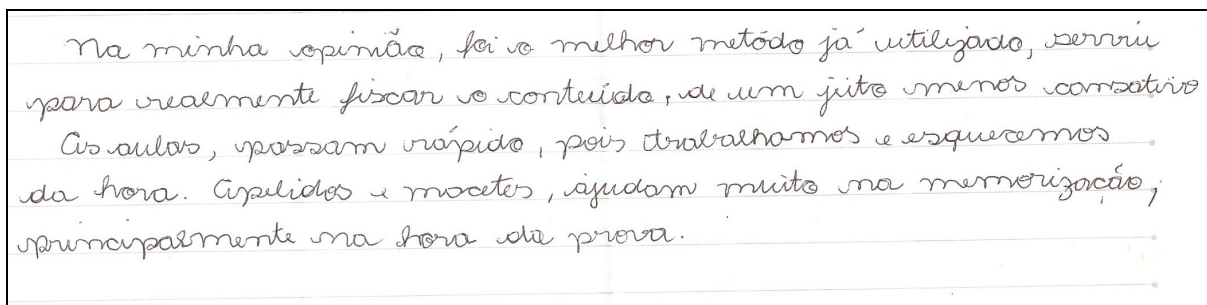 Na minha opinião, foi o melhor metódo já utilizado, serviu
para realmente fiscar o conteúdo, de um jeito menos cansativo
As aulas, passam rápido, pois trabalhamos e esquecemos
da hora. Apelidos e macetes, ajudam muito na memorização,
principalmente na hora da prova.